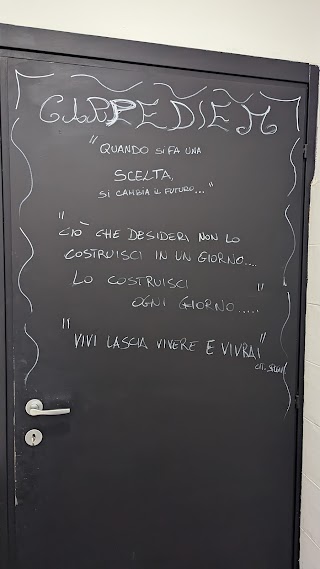 CARPE DIEM
"QUANDO SI FA UNA
SCELTA,
SI CAMBIA IL FUTURO..."
"CIÒ CHE DESIDERI NON LO
COSTRUISCI IN UN GIORNO....
LO COSTRUISCI
OGNI GIORNO....."
"VIVI LASCIA VIVERE E VIVRAI"